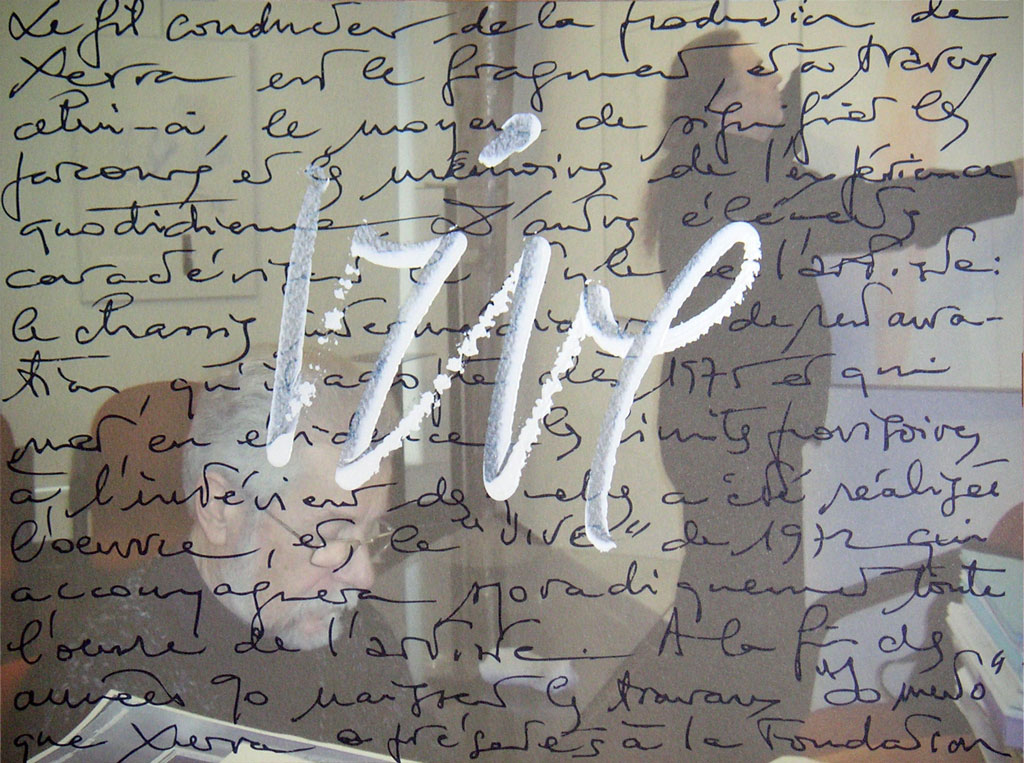 Le fil conducteur de la production de
Xerra est le fragment, et à travers
celui-ci, le moyen de signifier les
parcours et les mémoires de l'expérience
quotidienne. D'autres éléments
caractérisent le style de l'artiste:
le chassis intermédiaire de restaura-
tion, qu'il adopte dès 1975 et qui
met en évidence les limites provisoires
à l'intérieur desquelles a été réalisée
l'oeuvre, et le "Vive" de 1972 qui
accompagnera sporadiquement toute
l'oeuvre de l'artiste. A la fin des
années 90 naissent les travaux
que Xerra a présentés à la Fondation
Vive